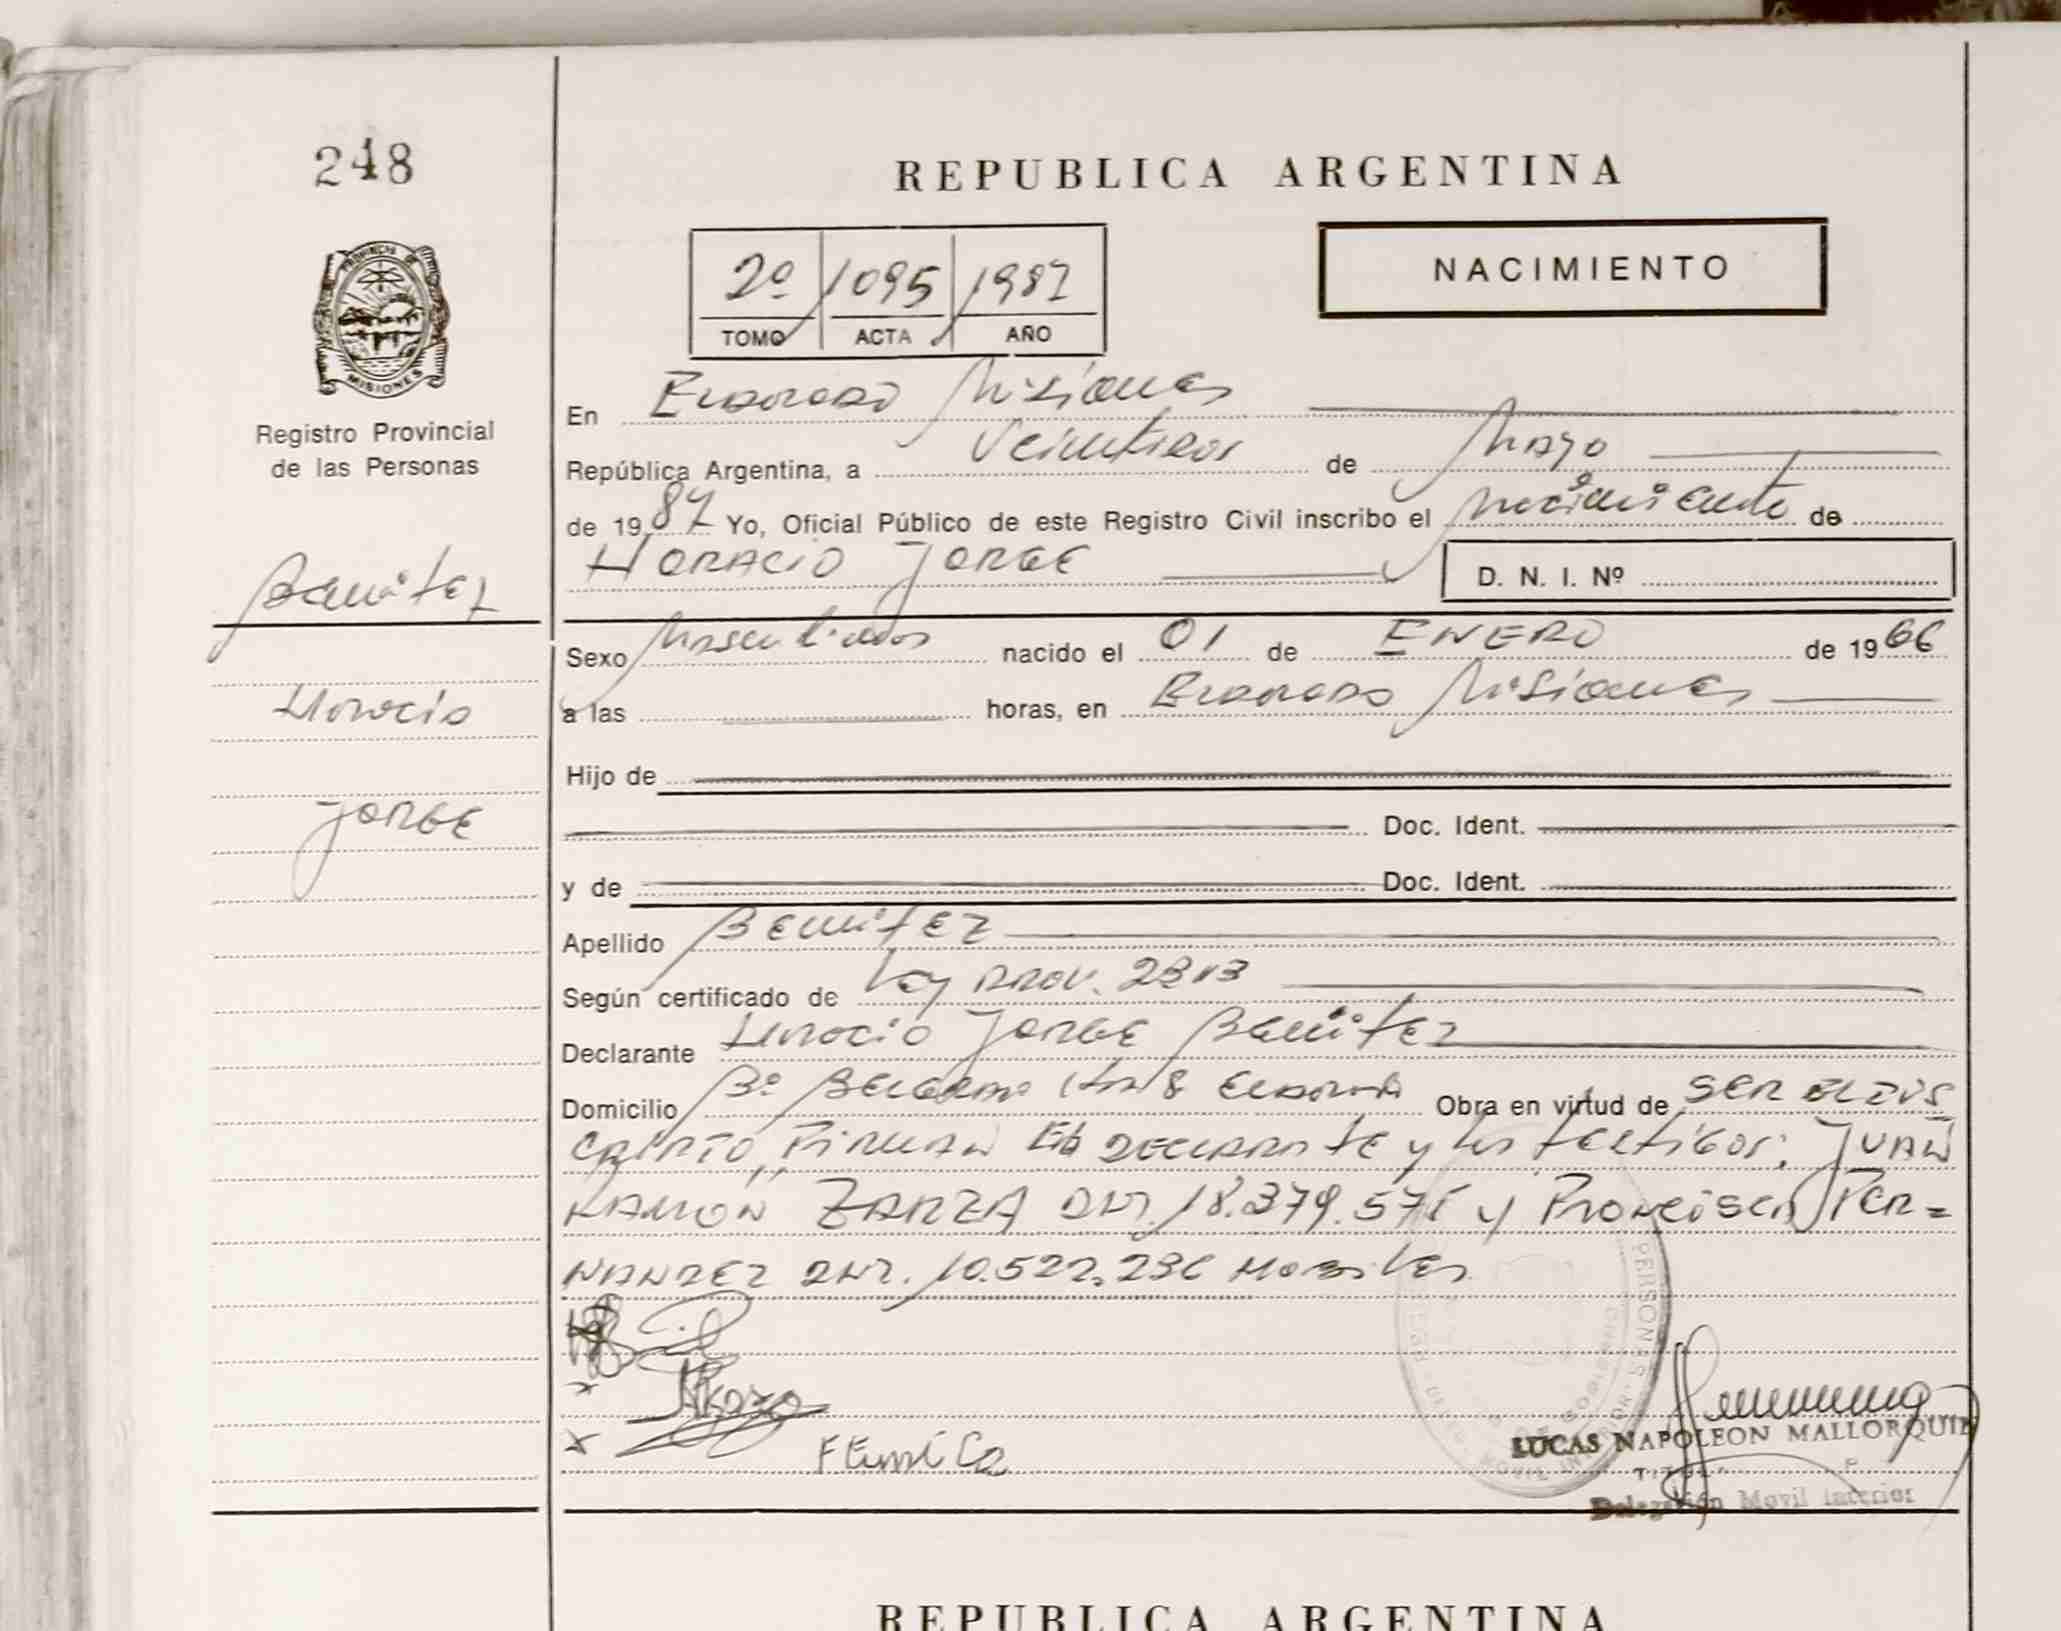 248
REPUBLICA ARGENTINA
2º 1095 1987
TOMO ACTA AÑO
NACIMIENTO
PROVINCIA DE
MISIONES
Registro Provincial
de las Personas
Benitez
Horacio
JORGE
En ELDORADO Misiones
República Argentina, a Veintidos de Mayo
de 1987 Yo, Oficial Público de este Registro Civil inscribo el nacimiento de
HORACIO JORGE
D. N. I. Nº
Sexo Masculino nacido el 01 de ENERO de 1966
a las horas, en ELDORADO Misiones
Hijo de
Doc. Ident.
y de Doc. Ident.
Apellido BENITEZ
Según certificado de Ley PROV. 2313
Declarante Horacio JORGE Benitez
Domicilio Bº BELGRANO Km 8 Eldorado Obra en virtud de SER EL INS
CRIPTO, FIRMAN EL DECLARANTE y los testigos: JUAN
RAMON ZARZA DNI. 18.379.571 y Francisco FER=
NANDEZ DNI. 10.522.236 Hábiles
PERSONAS
LUCAS NAPOLEON MALLORQUIN
Delegación Movil Interior
REPUBLICA ARGENTINA